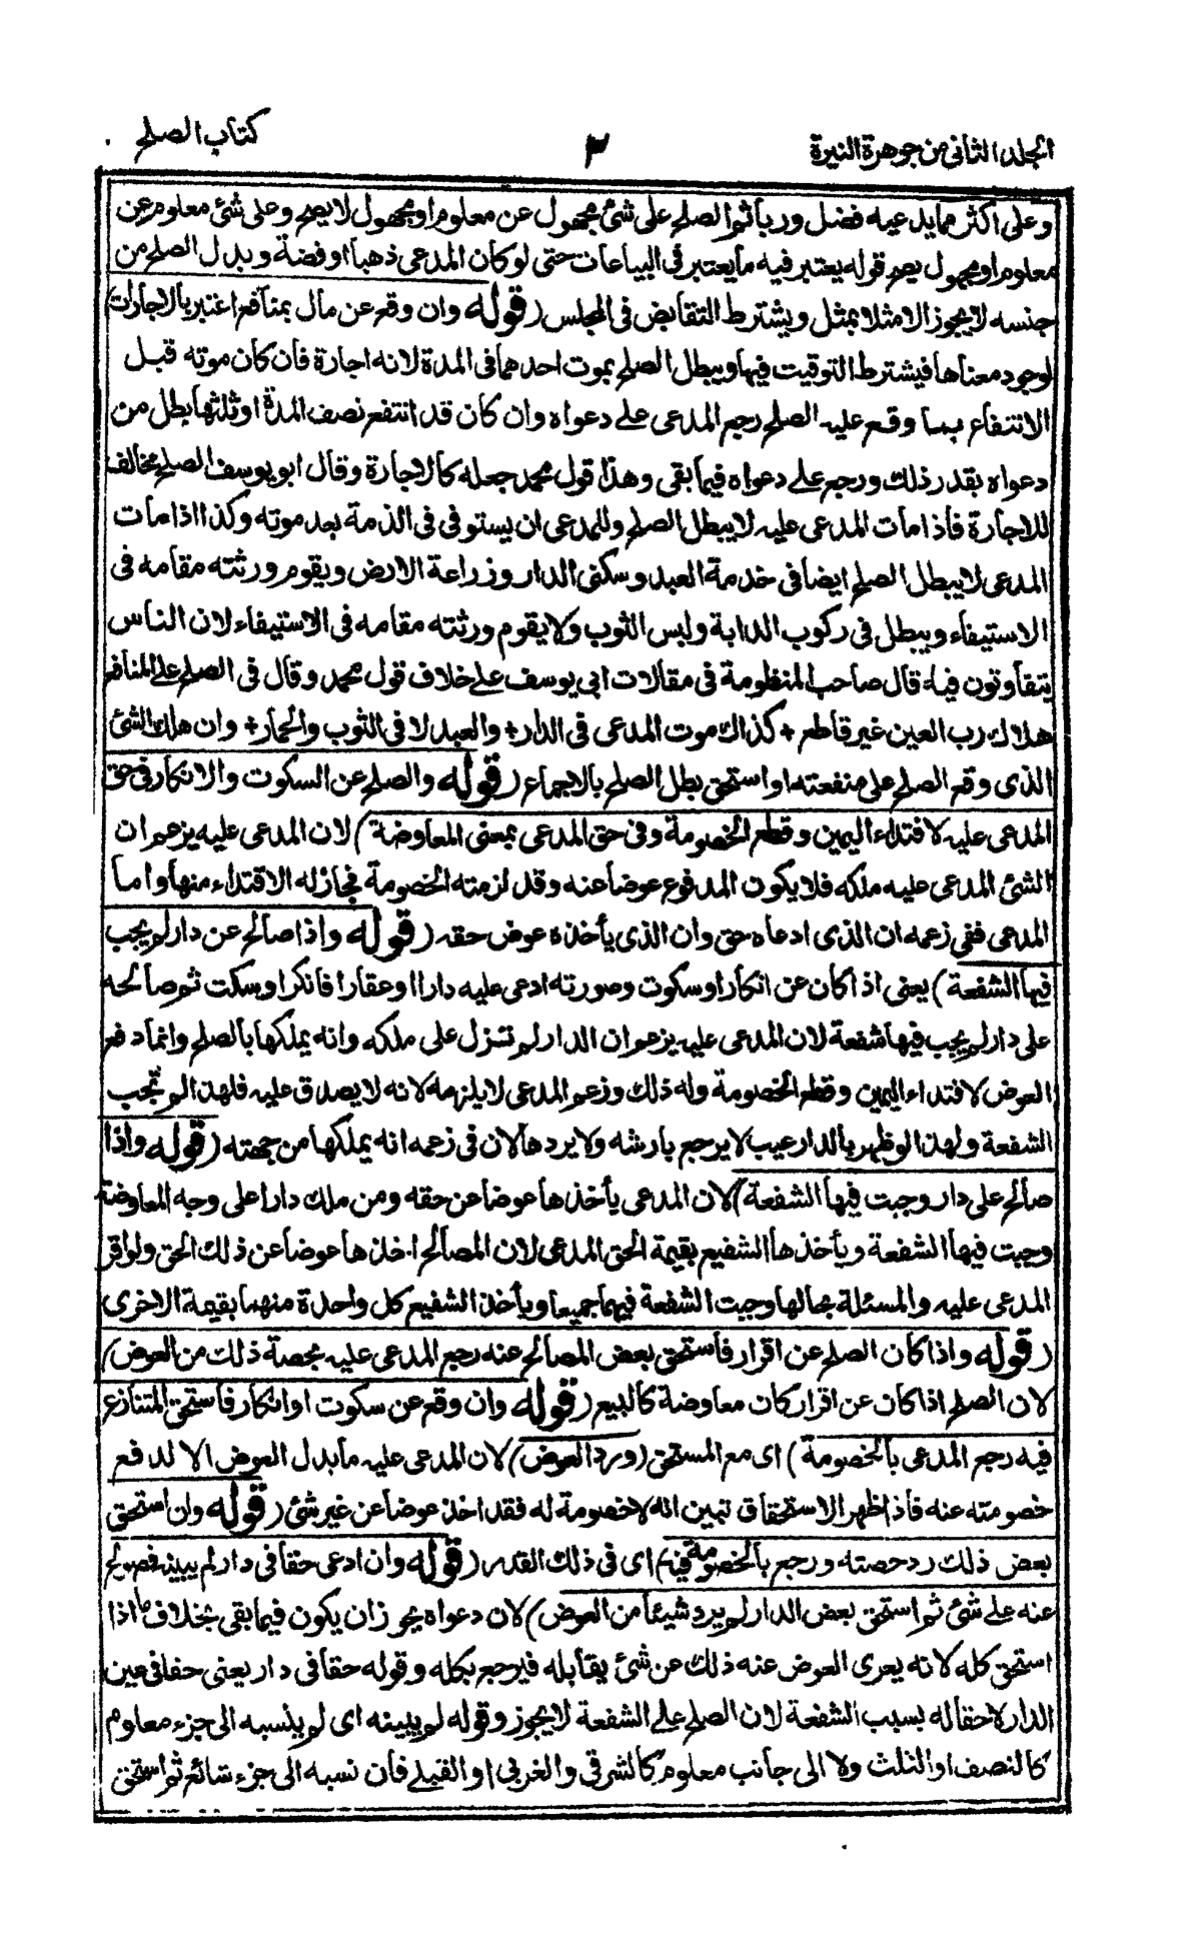 الجلد الثانی من جوهرة النیرة ٣ کتاب الصلح
وعلی اکثر مما یدعیه فضل وربا ثم الصلح علی شئ مجهول عن معلوم او مجهول لا یصح وعلی شئ معلوم عن
معلوم او مجهول یصح قوله یعتبر فیه ما یعتبر فی البیاعات حتی لو کان المدعی ذهبا او فضة وبدل الصلح من
جنسه لا یجوز الا مثلا بمثل ویشترط التقابض فی المجلس (قوله وان وقع عن مال بمنافع اعتبر بالاجارات)
لوجود معناها فیشترط التوقیت فیها ویبطل الصلح بموت احدهما فی المدة لانه اجارة فان کان موته قبل
الانتفاع بما وقع علیه الصلح رجع المدعی علی دعواه وان کان قد انتفع نصف المدة او ثلثها بطل من
دعواه بقدر ذلك ورجع علی دعواه فیما بقی وهذا قول محمد جعله کالاجارة وقال ابو یوسف الصلح مخالف
للاجارة فاذا مات المدعی علیه لا یبطل الصلح وللمدعی ان یستوفی فی الذمة بعد موته وکذا اذا مات
المدعی لا یبطل الصلح ایضا فی خدمة العبد وسکنی الدار وزراعة الارض ویقوم ورثته مقامه فی
الاستیفاء ویبطل فی رکوب الدابة ولبس الثوب ولا یقوم ورثته مقامه فی الاستیفاء لان الناس
یتفاوتون فیه قال صاحب المنظومة فی مقالات ابی یوسف علی خلاف قول محمد وقال فی الصلح علی المنافع
هلاك رب العین غیر قاطع + کذاك موت المدعی فی الدار + والعبد لا فی الثوب والحمار + وان هلك الشئ
الذی وقع الصلح علی منفعته او استحق بطل الصلح بالاجماع (قوله والصلح عن السکوت والانکار فی حق
المدعی علیه لافتداء الیمین وقطع الخصومة وفی حق المدعی بمعنی المعاوضة) لان المدعی علیه یزعم ان
الشئ المدعی علیه ملکه فلا یکون المدفوع عوضا عنه وقد لزمته الخصومة فجاز له الافتداء منها واما
المدعی ففی زعمه ان الذی ادعاه حق وان الذی یأخذه عوض حقه (قوله واذا صالح عن دار لم یجب
فیها الشفعة) یعنی اذا کان عن انکار او سکوت وصورته ادعی علیه دارا او عقارا فانکر او سکت ثم صالحه
علی دار لم یجب فیها شفعة لان المدعی علیه یزعم ان الدار لم تنزل علی ملکه وانه یملکها بالصلح وانما دفع
العوض لافتداء الیمین وقطع الخصومة وله ذلك وزعم المدعی لا یلزمه لانه لا یصدق علیه فلهذا لم تجب
الشفعة ولهذا لو ظهر بالدار عیب لا یرجع بارشه ولا یردها لان فی زعمه انه یملکها من جهته (قوله واذا
صالح علی دار وجبت فیها الشفعة) لان المدعی یأخذها عوضا عن حقه ومن ملك دارا علی وجه المعاوضة
وجبت فیها الشفعة ویأخذها الشفیع بقیمة الحق المدعی لان المصالح اخذها عوضا عن ذلك الحق ولو اقر
المدعی علیه والمسئلة بحالها وجبت الشفعة فیهما جمیعا ویأخذ الشفیع کل واحدة منهما بقیمة الاخری
(قوله واذا کان الصلح عن اقرار فاستحق بعض المصالح عنه رجع المدعی علیه بحصة ذلك من العوض)
لان الصلح اذا کان عن اقرار کان معاوضة کالبیع (قوله وان وقع عن سکوت او انکار فاستحق المتنازع
فیه رجع المدعی بالخصومة) ای مع المستحق (ورد العوض) لان المدعی علیه ما بدل العوض الا لدفع
خصومته عنه فاذا ظهر الاستحقاق تبین انه لا خصومة له فقد اخذ عوضا عن غیر شئ (قوله وان استحق
بعض ذلك رد حصته ورجع بالخصومة فیه) ای فی ذلك القدر (قوله وان ادعی حقا فی دار لم یبینه فصولح
عنه علی شئ ثم استحق بعض الدار لم یرد شیئا من العوض) لان دعواه یجوز ان یکون فیما بقی بخلاف ما اذا
استحق کله لانه یعری العوض عنه ذلك عن شئ یقابله فیرجع بکله وقوله حقا فی دار یعنی حقا فی عین
الدار لا حقا له بسبب الشفعة لان الصلح علی الشفعة لا یجوز وقوله لم یبینه ای لم ینسبه الی جزء معلوم
کالنصف او الثلث ولا الی جانب معلوم کالشرقی والغربی او القبلی فان نسبه الی جزء شائع ثم استحق